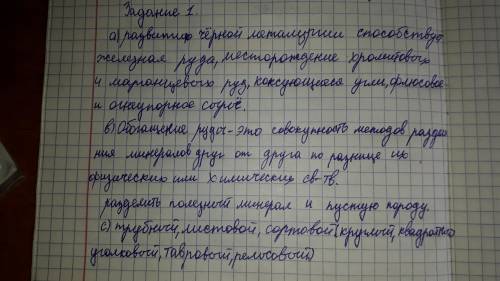 Задание 1.
а) развитию чёрной металургии способствует
железная руда, месторождение хромитового
и марганцевого руд, коксующиеся угли, флюсовое
и огнеупорное сырьё.
в) Обогащение руды - это совокупность методов разделе
ния минералов друг от друга по разнице их
физических или химических св-тв.
разделить полезный минерал и пустую породу.
с) трубный, листовой, сортовой (круглый, квадратно
уголковый, тавровый, рельсовый)